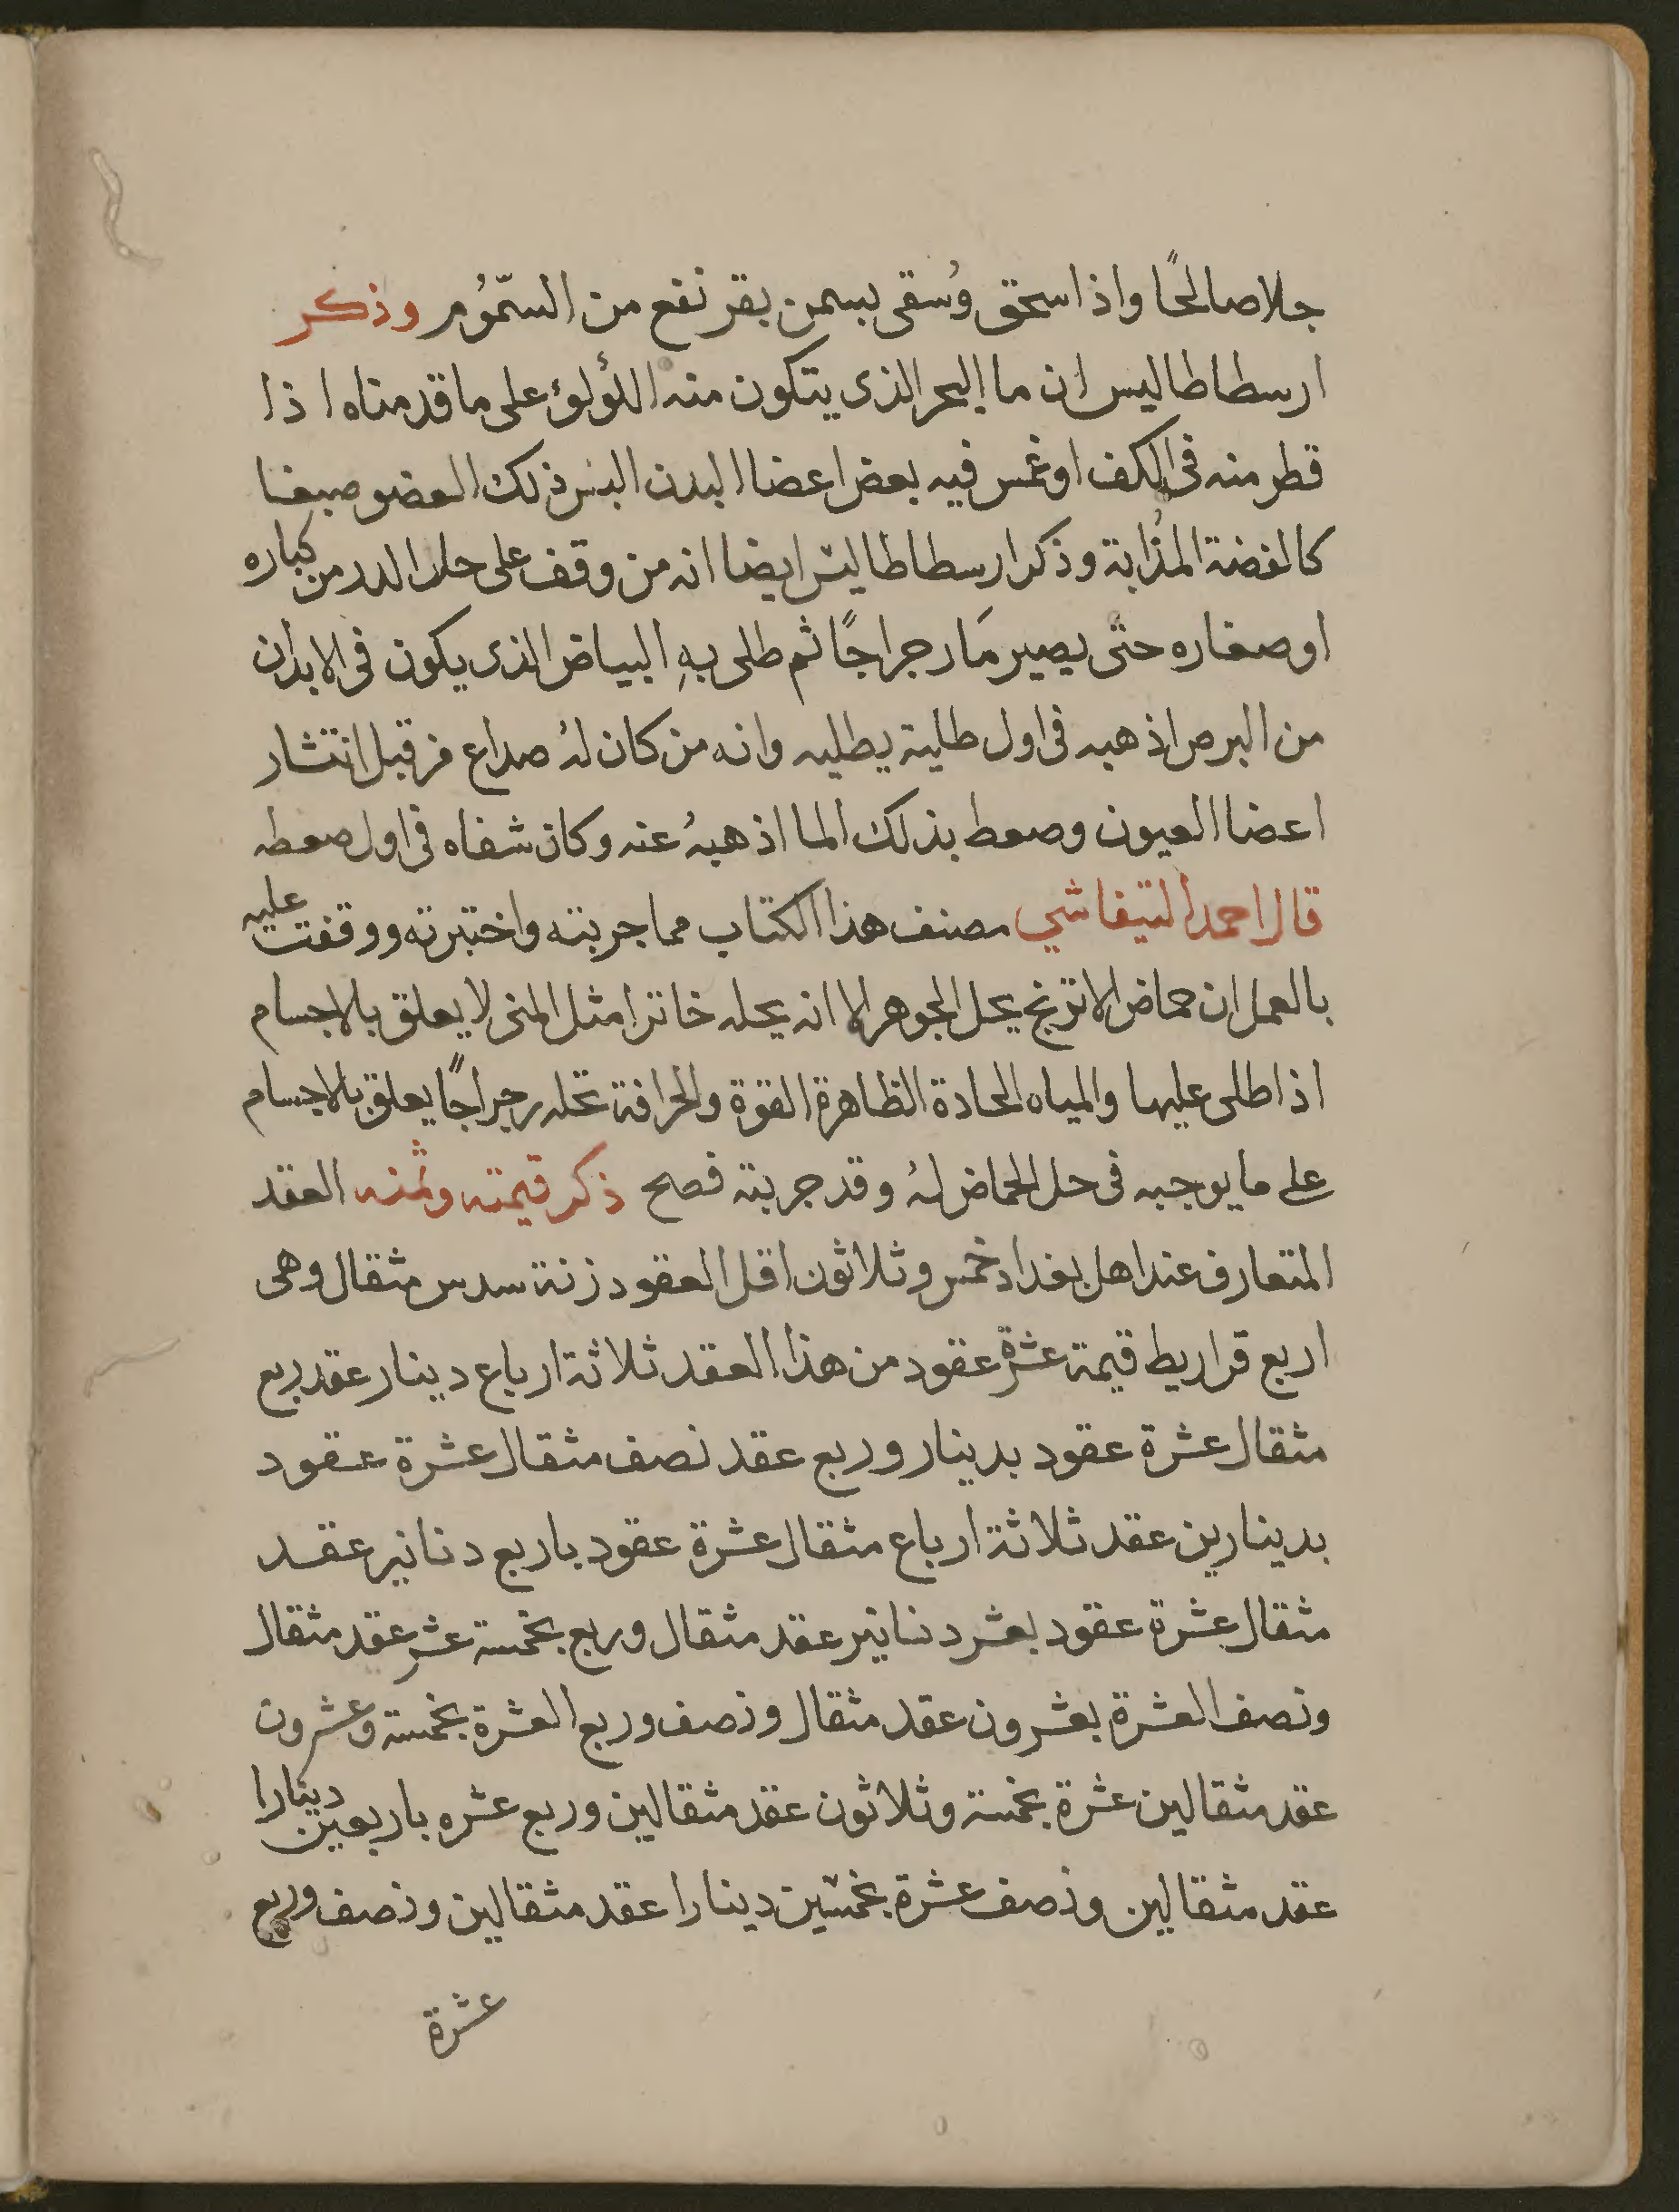 جلا صالحًا واذا سحق وُسقى بسمن بقر نفع من السّمُوم وذكر
ارسطاطاليس ان ما البحر الذى يتكون منه اللؤلؤ على ما قدمناه اذا
قطر منه فى الكف او غمس فيه بعض اعضا البدن البس ذلك العضو صبغا
كالفضة المذابة وذكر ارسطاطاليس ايضا انه من وقف على حل الدر من كباره
او صغاره حتى يصير مَا رجراجًا ثم طلى بهِ البياض الذى يكون فى الابدان
من البرص اذهبه فى اول طلية يطليه وانه من كان لهُ صداع من قبل انتشار
اعضا العيون وصعط بذلك الما اذهبهُ عنه وكان شفاه فى اول صعطه
قال احمد التيفاشي مصنف هذا الكتاب مما جربته واختبرته ووقفت عليه
بالعمل ان حماض الاترنج يحل الجوهر الا انه يحله خاثرا مثل المنى لا يعلق بالاجسام
اذا طلى عليها والمياه الحادة الظاهرة القوة والحرافة تحله رجراجًا يعلق بالاجسام
على ما يوجبه فى حل الحماض لهُ وقد جربته فصح ذكر قيمته وثمنه العقد
المتعارف عند اهل بغداد خمس وثلاثون اقل العقود زنة سدس مثقال وهى
اربع قراريط قيمة عشرة عقود من هذا العقد ثلاثة ارباع دينار عقد ربع
مثقال عشرة عقود بدينار وربع عقد نصف مثقال عشرة عقود
بدينارين عقد ثلاثة ارباع مثقال عشرة عقود باربع دنانير عقد
مثقال عشرة عقود بعشر دنانير عقد مثقال وربع بخمسة عشر عقد مثقال
ونصف العشرة بعشرون عقد مثقال ونصف وربع العشرة بخمسة وعشرون
عقد مثقالين عشرة بخمسة وثلاثون عقد مثقالين وربع عشره باربعين دينارا
عقد مثقالين ونصف عشرة بخمسين دينارا عقد مثقالين ونصف وربع
عشرة